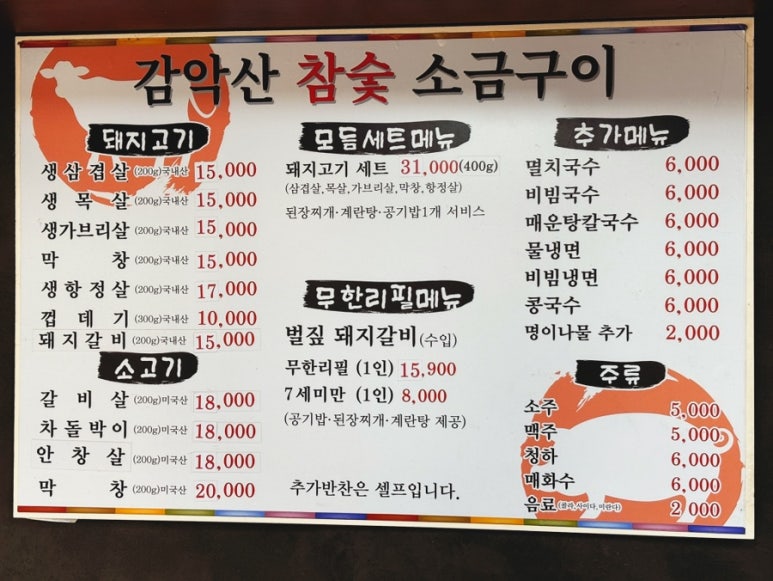 감악산 참숯 소금구이
돼지고기
생삼겹살 (200g)국내산 15,000
생 목 살 (200g)국내산 15,000
생가브리살 (200g)국내산 15,000
막 창 (200g)국내산 15,000
생항정살 (200g)국내산 17,000
껍 데 기 (300g)국내산 10,000
돼지갈비 (200g)국내산 15,000
소고기
갈 비 살 (200g)미국산 18,000
차돌박이 (200g)미국산 18,000
안 창 살 (200g)미국산 18,000
막 창 (200g)미국산 20,000
모듬세트메뉴
돼지고기 세트 31,000(400g)
(삼겹살,목살,가브리살,막창,항정살)
된장찌개·계란탕·공기밥1개 서비스
무한리필메뉴
벌짚 돼지갈비(수입)
무한리필 (1인) 15,900
7세미만 (1인) 8,000
(공기밥·된장찌개·계란탕 제공)
추가반찬은 셀프입니다.
추가메뉴
멸치국수 6,000
비빔국수 6,000
매운탕칼국수 6,000
물냉면 6,000
비빔냉면 6,000
콩국수 6,000
명이나물 추가 2,000
주류
소주 5,000
맥주 5,000
청하 6,000
매화수 6,000
음료(콜라,사이다,미란다) 2,000